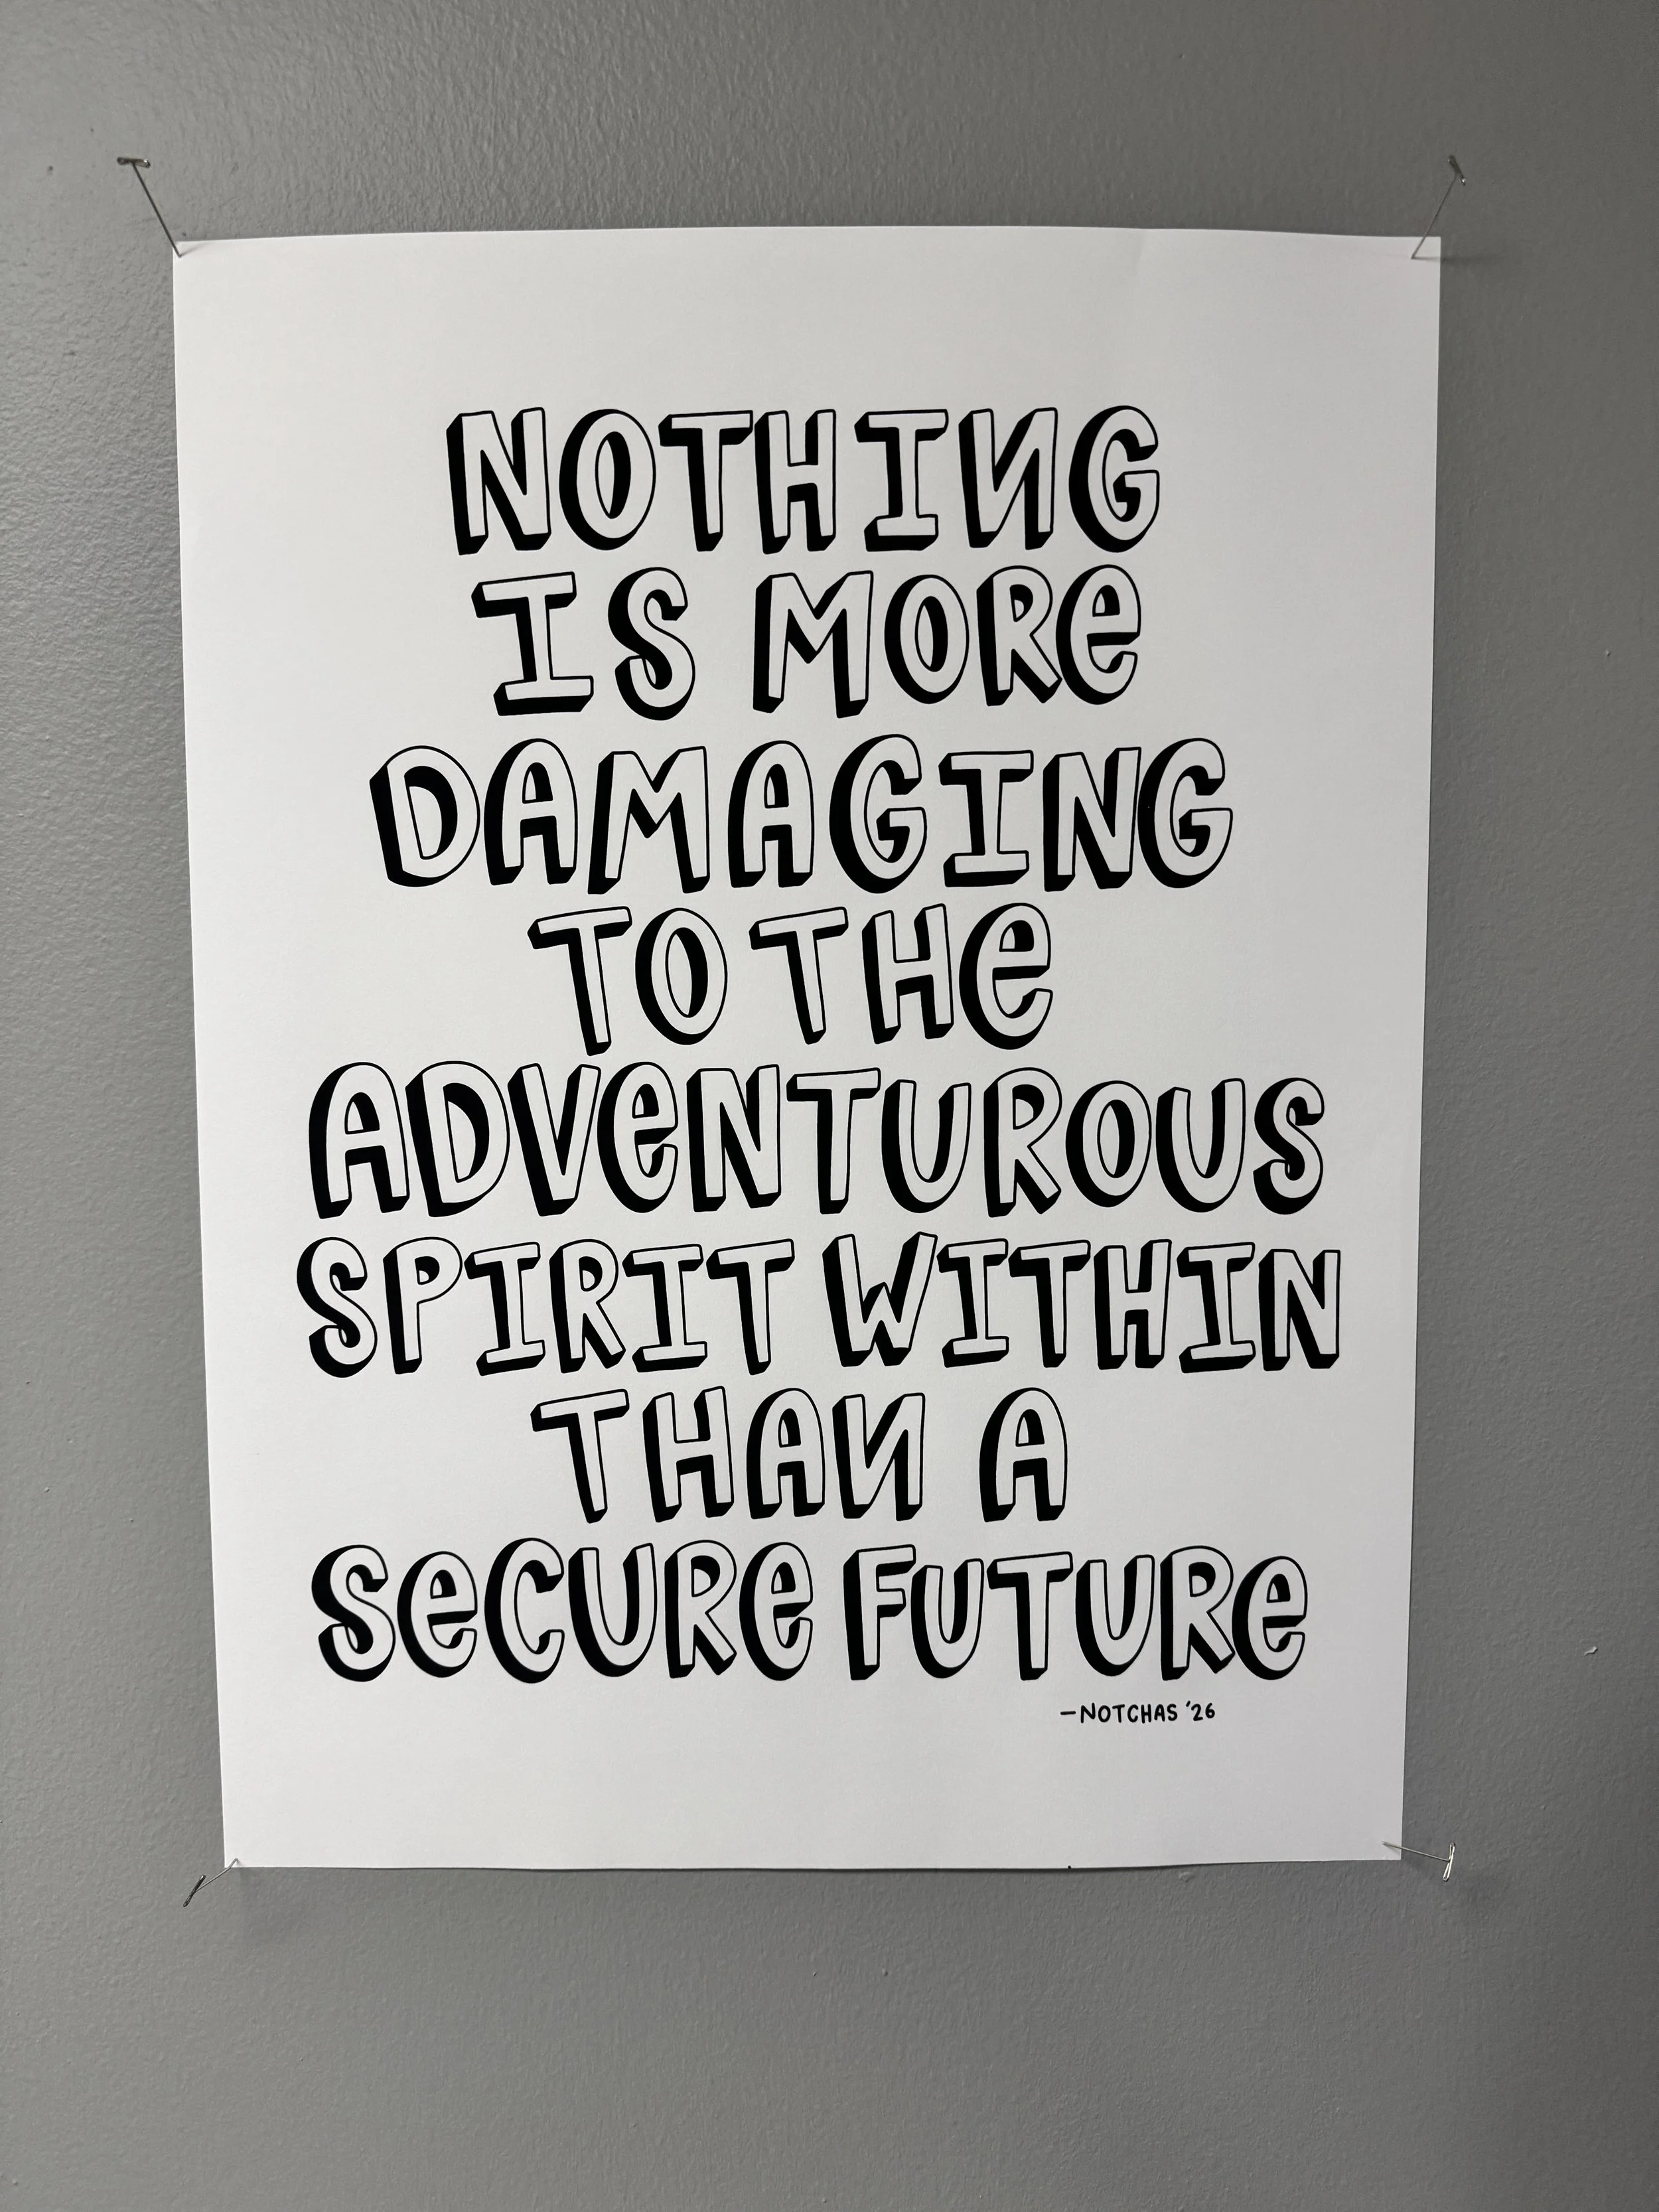 NOTHING
IS MORe
DAMAGING
TO THe
ADVeNTUROUS
SPIRIT WITHIN
THAN A
SeCURe FUTURe
—NOTCHAS '26